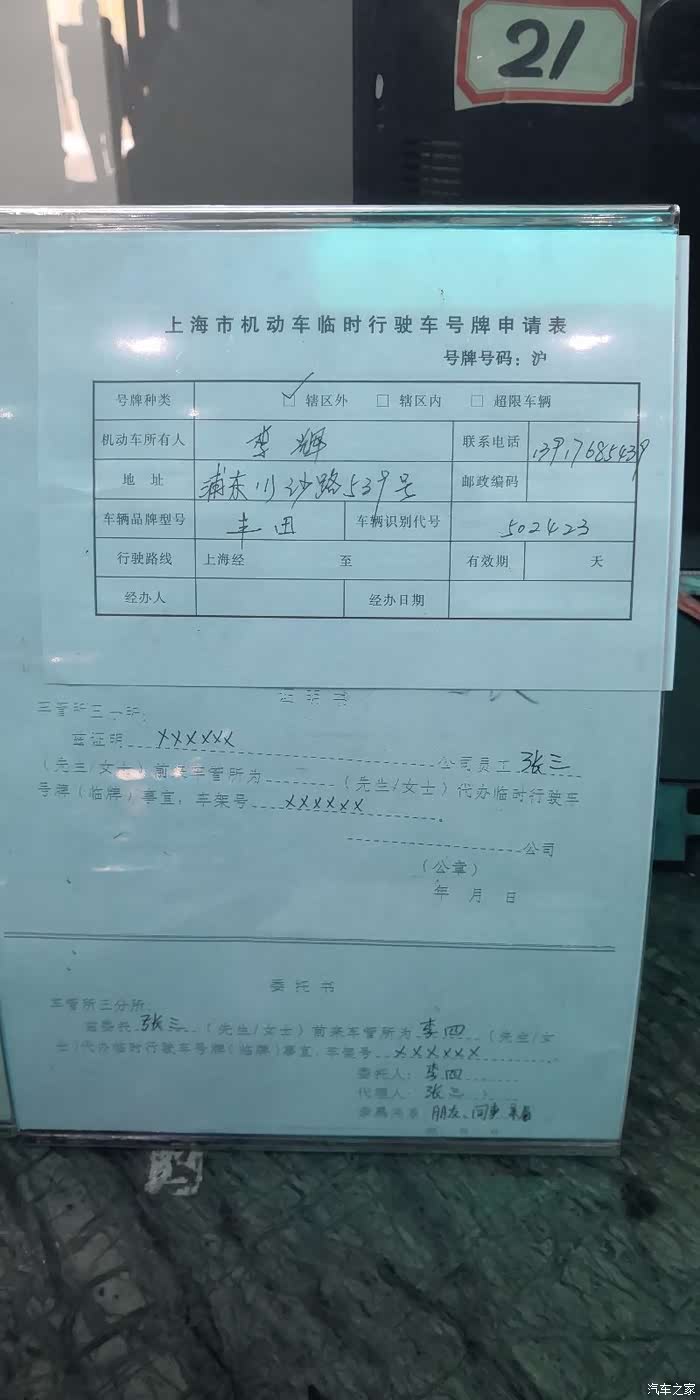 21
上海市机动车临时行驶车号牌申请表
号牌号码：沪
号牌种类 ☑ 辖区外 □ 辖区内 □ 超限车辆
机动车所有人 李辉 联系电话 13917685439
地 址 浦东川沙路539号 邮政编码
车辆品牌型号 丰田 车辆识别代号 502423
行驶路线 上海经 至 有效期 天
经办人 经办日期
证明书
车管所三分所：
兹证明 XXXXXX 公司员工 张三
（先生/女士）前来车管所为 （先生/女士）代办临时行驶车
号牌（临牌）事宜，车架号 XXXXXX 。
公司
（公章）
年 月 日
委托书
车管所三分所：
兹委托 张三 （先生/女士）前来车管所为 李四 （先生/女
士）代办临时行驶车号牌（临牌）事宜，车架号 XXXXXX
委托人： 李四
代理人： 张三
朋友、同事
汽车之家